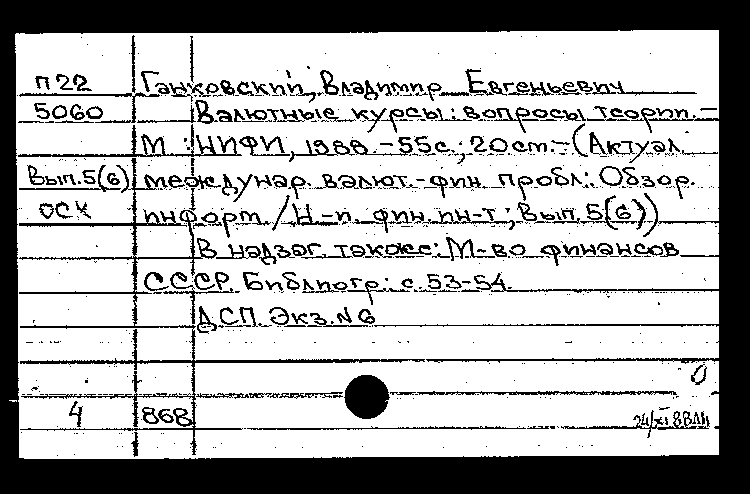 П22 Ганковский, Владимир Евгеньевич
5060 Валютные курсы: вопросы теории. –
М.: НИФИ, 1988. – 55с.; 20см. – (Актуал.
Вып.5(6) междунар. валют.-фин. пробл.: Обзор.
ОСК информ. / Н-и. фин. ин-т; Вып. 5(6))
В надзаг. также: М-во финансов
СССР. Библиогр.: с. 53-54.
ДСП. Экз. N 6
0
4 868 24/XI 88